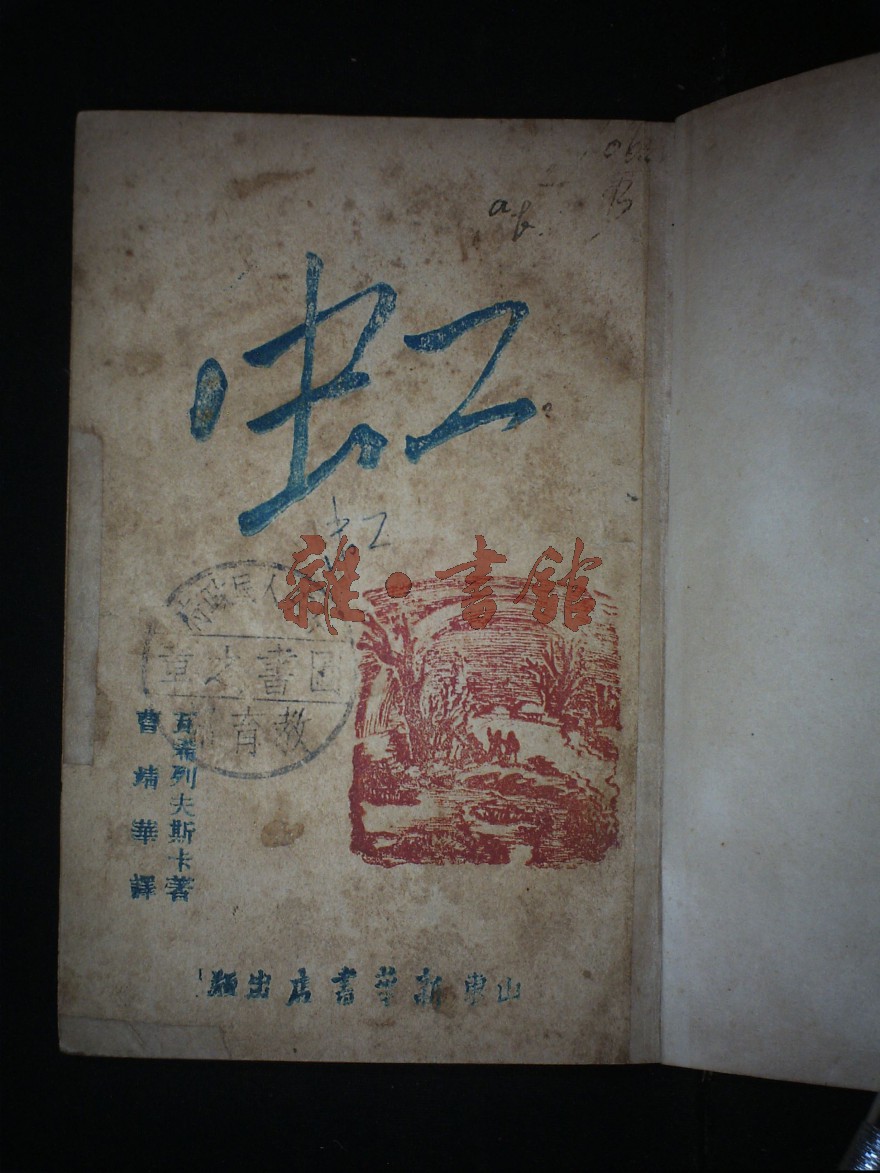 虹
虹
雜·書館
人民政府
圖書之章
教育
瓦希列夫斯卡著
曹靖華譯
山東新華書店出版